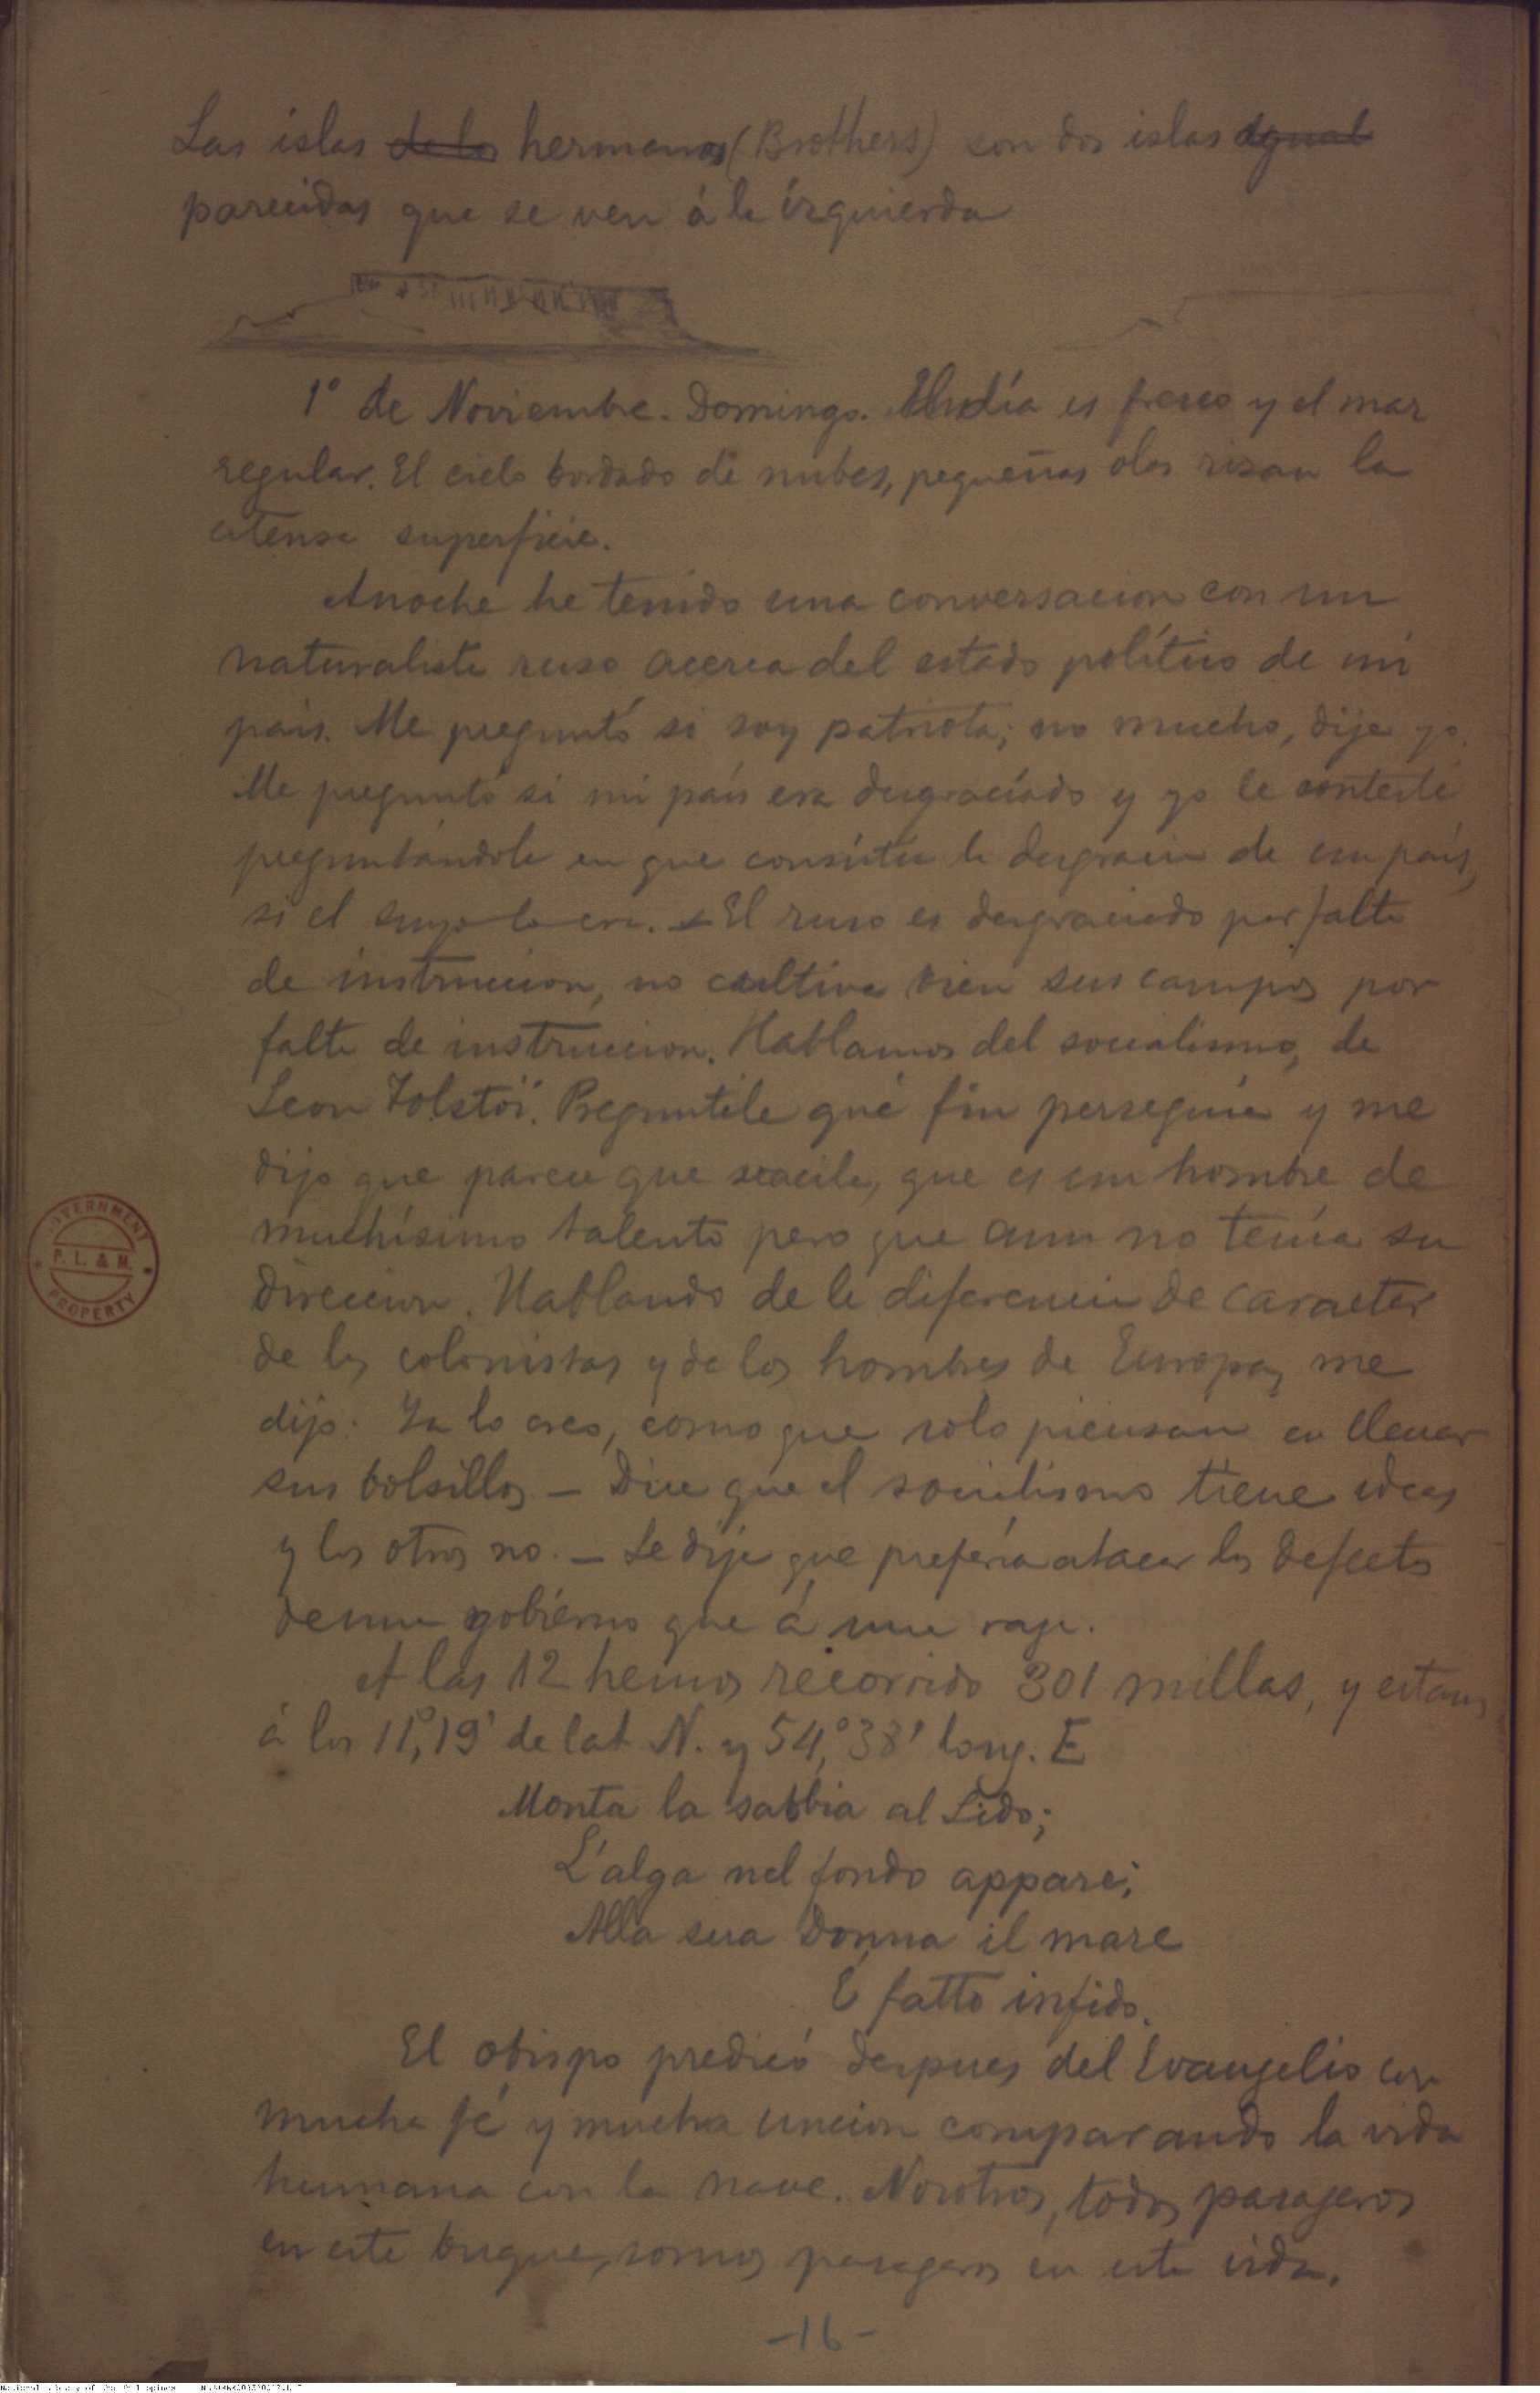 Las islas de los hermanos (Brothers) son dos islas igual
parecidas que se ven á la izquierda
1º de Noviembre. Domingo. El día es fresco y el mar
regular. El cielo bordado de nubes, pequeñas olas rizan la
estensa superficie.
Anoche he tenido una conversacion con un
naturalista ruso acerca del estado político de mi
país. Me preguntó si soy patriota; no mucho, dije yo.
Me preguntó si mi país era desgraciado y yo le contesté
preguntándole en que consistía la desgracia de un país,
si el suyo lo era. — El ruso es desgraciado por falta
de instruccion, no cultiva bien sus campos por
falta de instruccion. Hablamos del socialismo, de
Leon Tolstoï. Preguntéle qué fin perseguia y me
dijo que parece que vacila, que es un hombre de
muchísimo talento pero que aun no tenía su
direccion. Hablando de la diferencia de caracter
de los colonistas y de los hombres de Europa, me
dijo: Ya lo creo, como que solo piensan en llenar
sus bolsillos — Dice que el socialismo tiene ideas
y los otros no. — Le dije que prefería atacar los defectos
de un gobierno que á una raza.
A las 12 hemos recorrido 301 millas, y estamos
á los 11º,19' de lat N. y 54,º38' long. E
Monta la sabbia al Lido;
L'alga nel fondo appare;
Alla sua Donna il mare
È fatto infido.
El obispo predicó despues del Evangelio con
mucha fé y mucha uncion comparando la vida
humana con la nave. Nosotros, todos pasageros
en este buque, somos pasageros en esta vida.
-16-
GOVERNMENT
P. L. & M.
PROPERTY